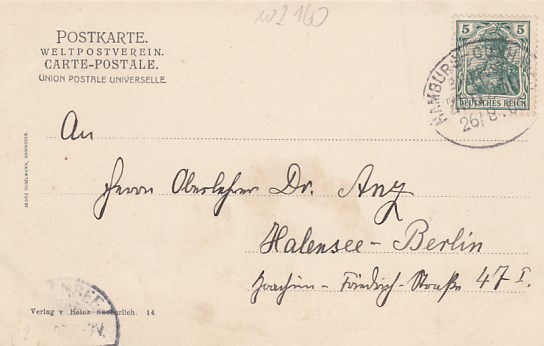 w I 160
POSTKARTE.
WELTPOSTVEREIN.
CARTE-POSTALE.
UNION POSTALE UNIVERSELLE
5 5
DEUTSCHES REICH
HAMBURG
26/8
An
Herrn Oberlehrer Dr. Anz
Halensee-Berlin
Joachim-Friedrich-Straße 47 I.
Verlag v. Heinr. 14